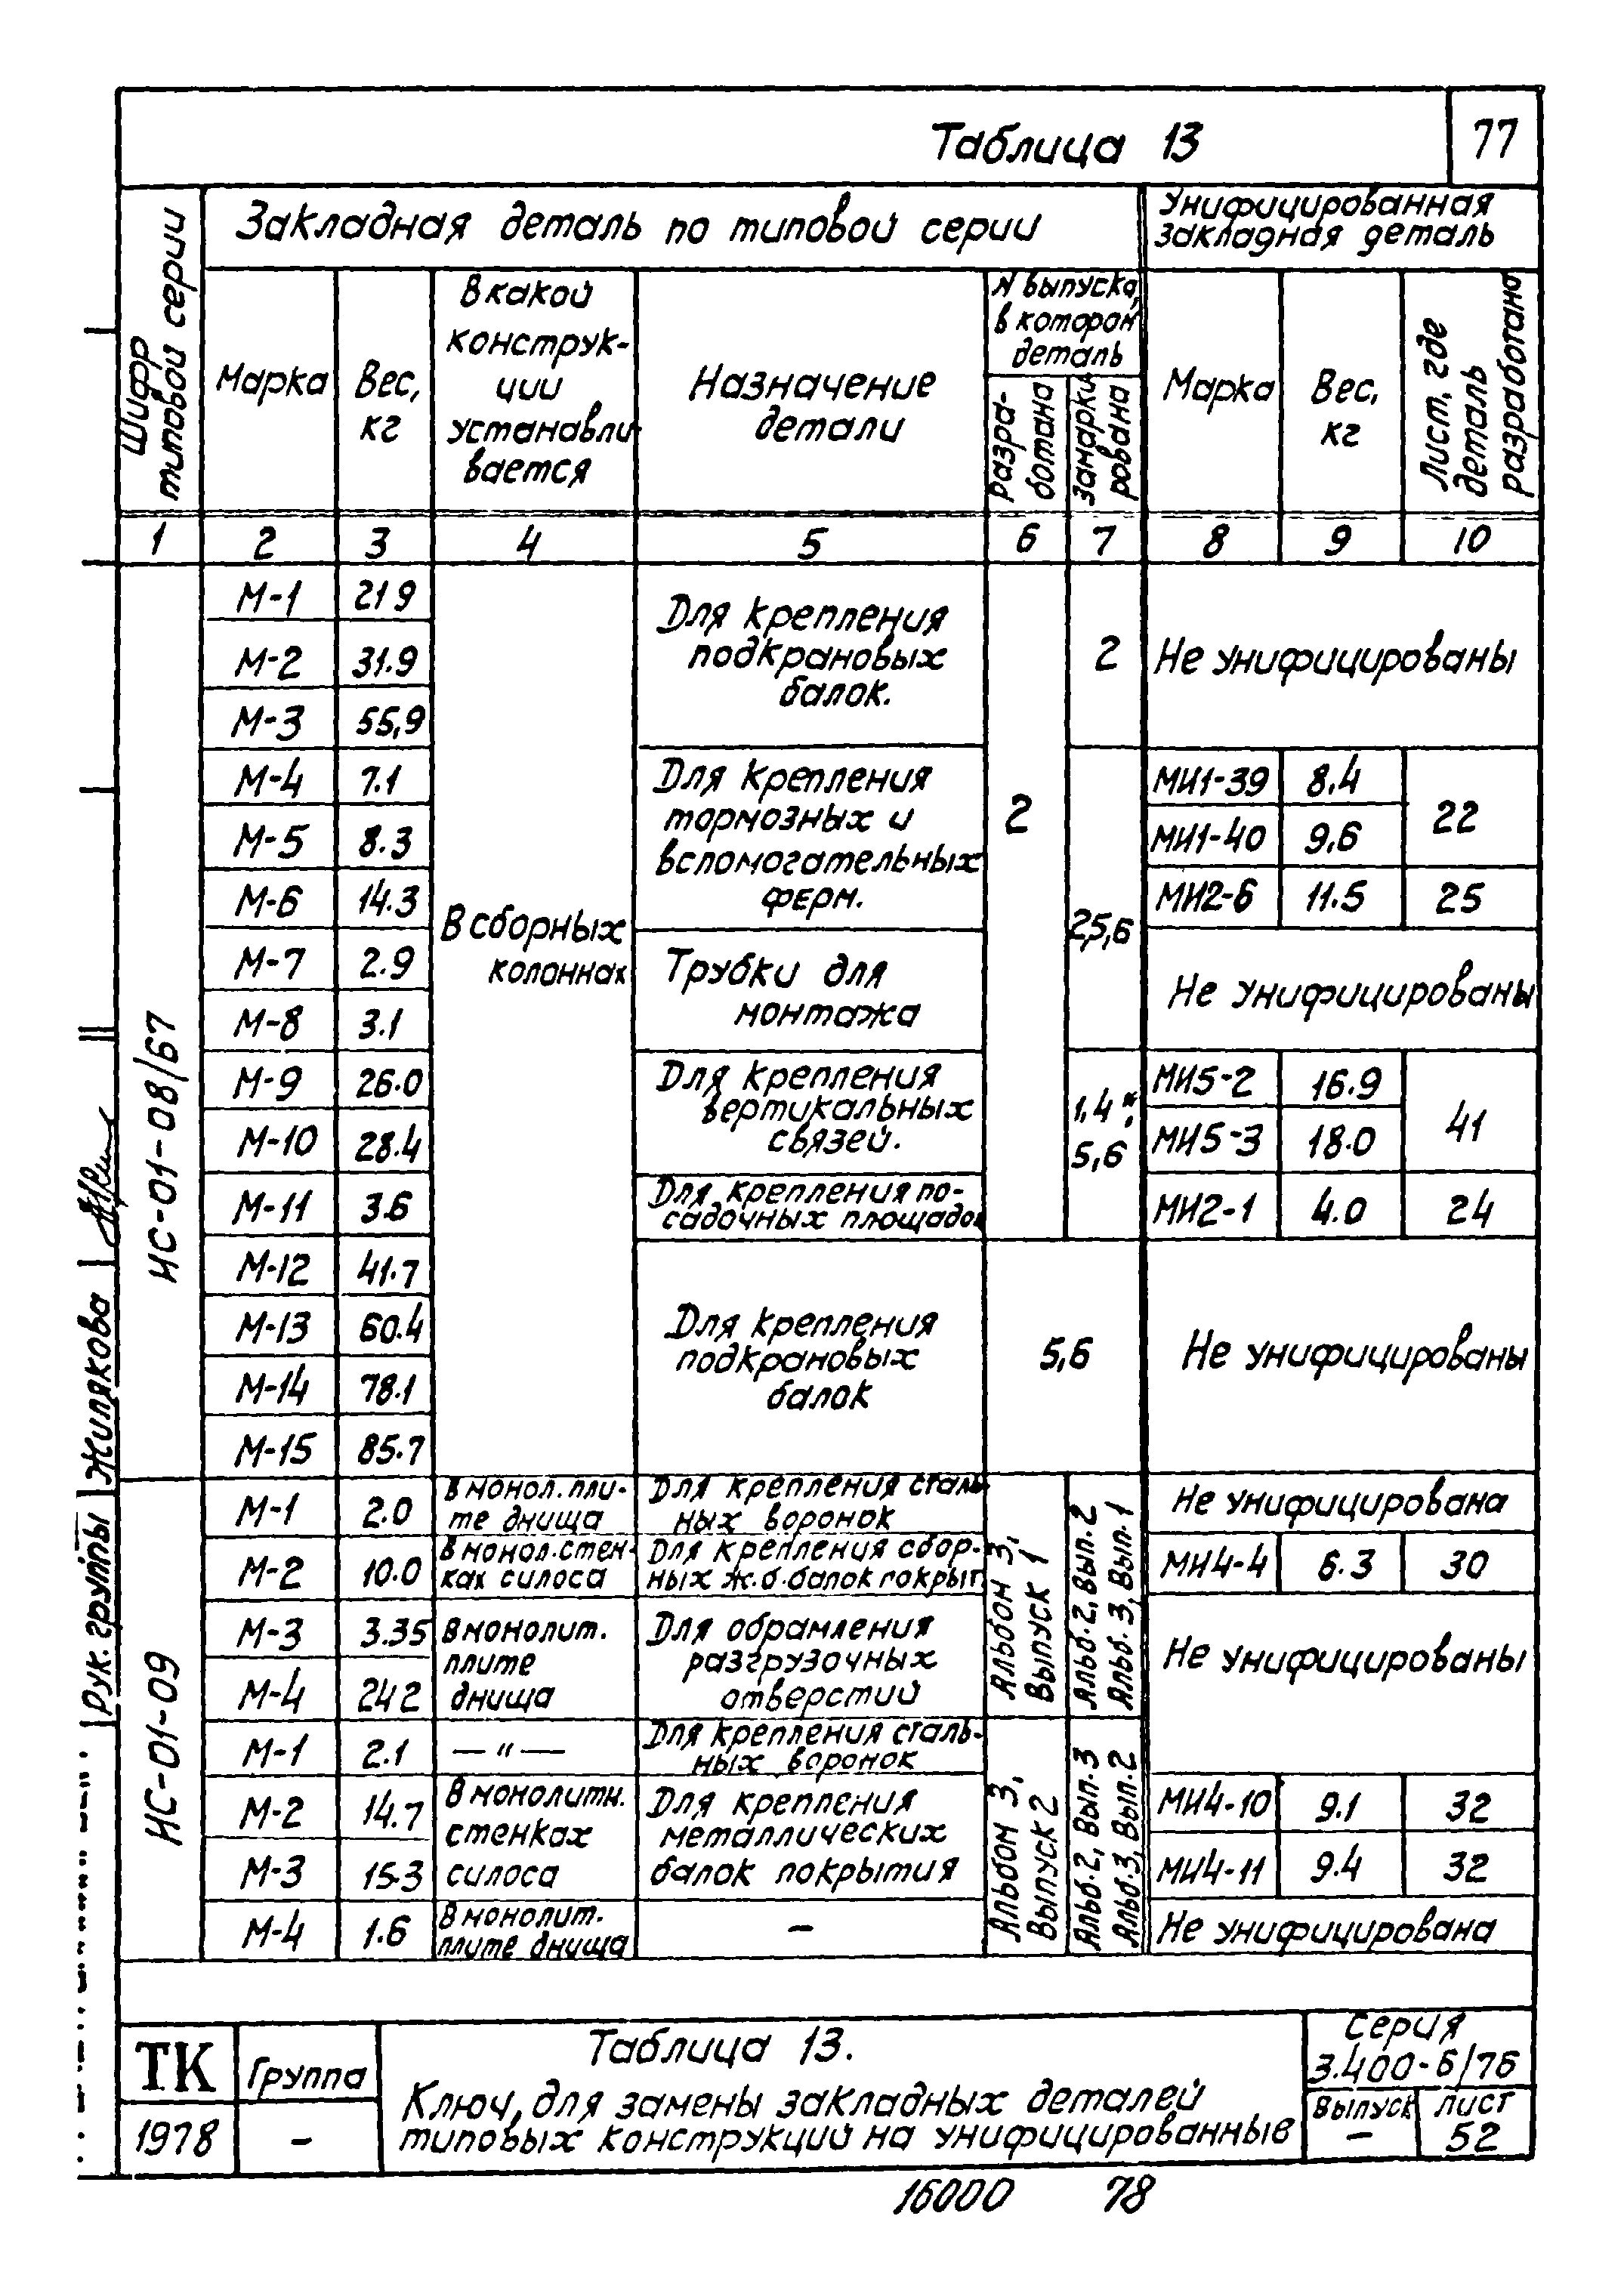 Таблица 13
77
Шифр
типовой серии
Закладная деталь по типовой серии
Унифицированная
закладная деталь
Марка
Вес,
кг
В какой
конструк-
ции
устанавли
вается
Назначение
детали
N выпуска,
в котором
деталь
разра-
ботана
замарки-
рована
Марка
Вес,
кг
Лист, где
деталь
разработана
1 2 3 4 5 6 7 8 9 10
ИС-01-08/67
В сборных
колоннах
М-1 21 9
М-2 31.9
М-3 55,9
Для крепления
подкрановых
балок.
2
2
Не унифицированы
М-4 7.1
М-5 8.3
М-6 14.3
Для крепления
тормозных и
вспомогательных
ферм.
2,5,6
МИ1-39 8.4
МИ1-40 9,6
22
МИ2-6 11.5 25
М-7 2.9
М-8 3.1
Трубки для
монтажа
Не унифицированы
М-9 26.0
М-10 28.4
Для крепления
вертикальных
связей.
5,6
МИ5-2 16.9
МИ5-3 18.0
41
М-11 3.6
Для крепления по-
садочных площадок
МИ2-1 4.0 24
М-12 41.7
М-13 60.4
М-14 78.1
М-15 85.7
Для крепления
подкрановых
балок
5,6
Не унифицированы
ИС-01-09
М-1 2.0
В монол. пли-
те днища
Для крепления сталь-
ных воронок
Не унифицирована
М-2 10.0
В монол. стен-
ках силоса
Для крепления сбор-
ных ж.б. балок покрыт
МИ4-4 6.3 30
М-3 3.35
М-4 24 2
В монолит.
плите
днища
Для обрамления
разгрузочных
отверстий
Альбом 3,
Выпуск 1
Альб. 2, Вып. 2
Альб. 3, Вып. 1
Не унифицированы
М-1 2.1
— " —
Для крепления сталь-
ных воронок
М-2 14.7
М-3 15.3
В монолитн.
стенках
силоса
Для крепления
металлических
балок покрытия
Альбом 3,
Выпуск 2
Альб. 2, Вып. 3
Альб. 3, Вып. 2
МИ4-10 9.1 32
МИ4-11 9.4 32
М-4 1.6
В монолит.
плите днища
–
Не унифицирована
Рук. группы Жилякова
ТК
1978
Группа
–
Таблица 13.
Ключ, для замены закладных деталей
типовых конструкций на унифицированные
Серия
3.400-6/76
Выпуск
–
Лист
52
16000 78